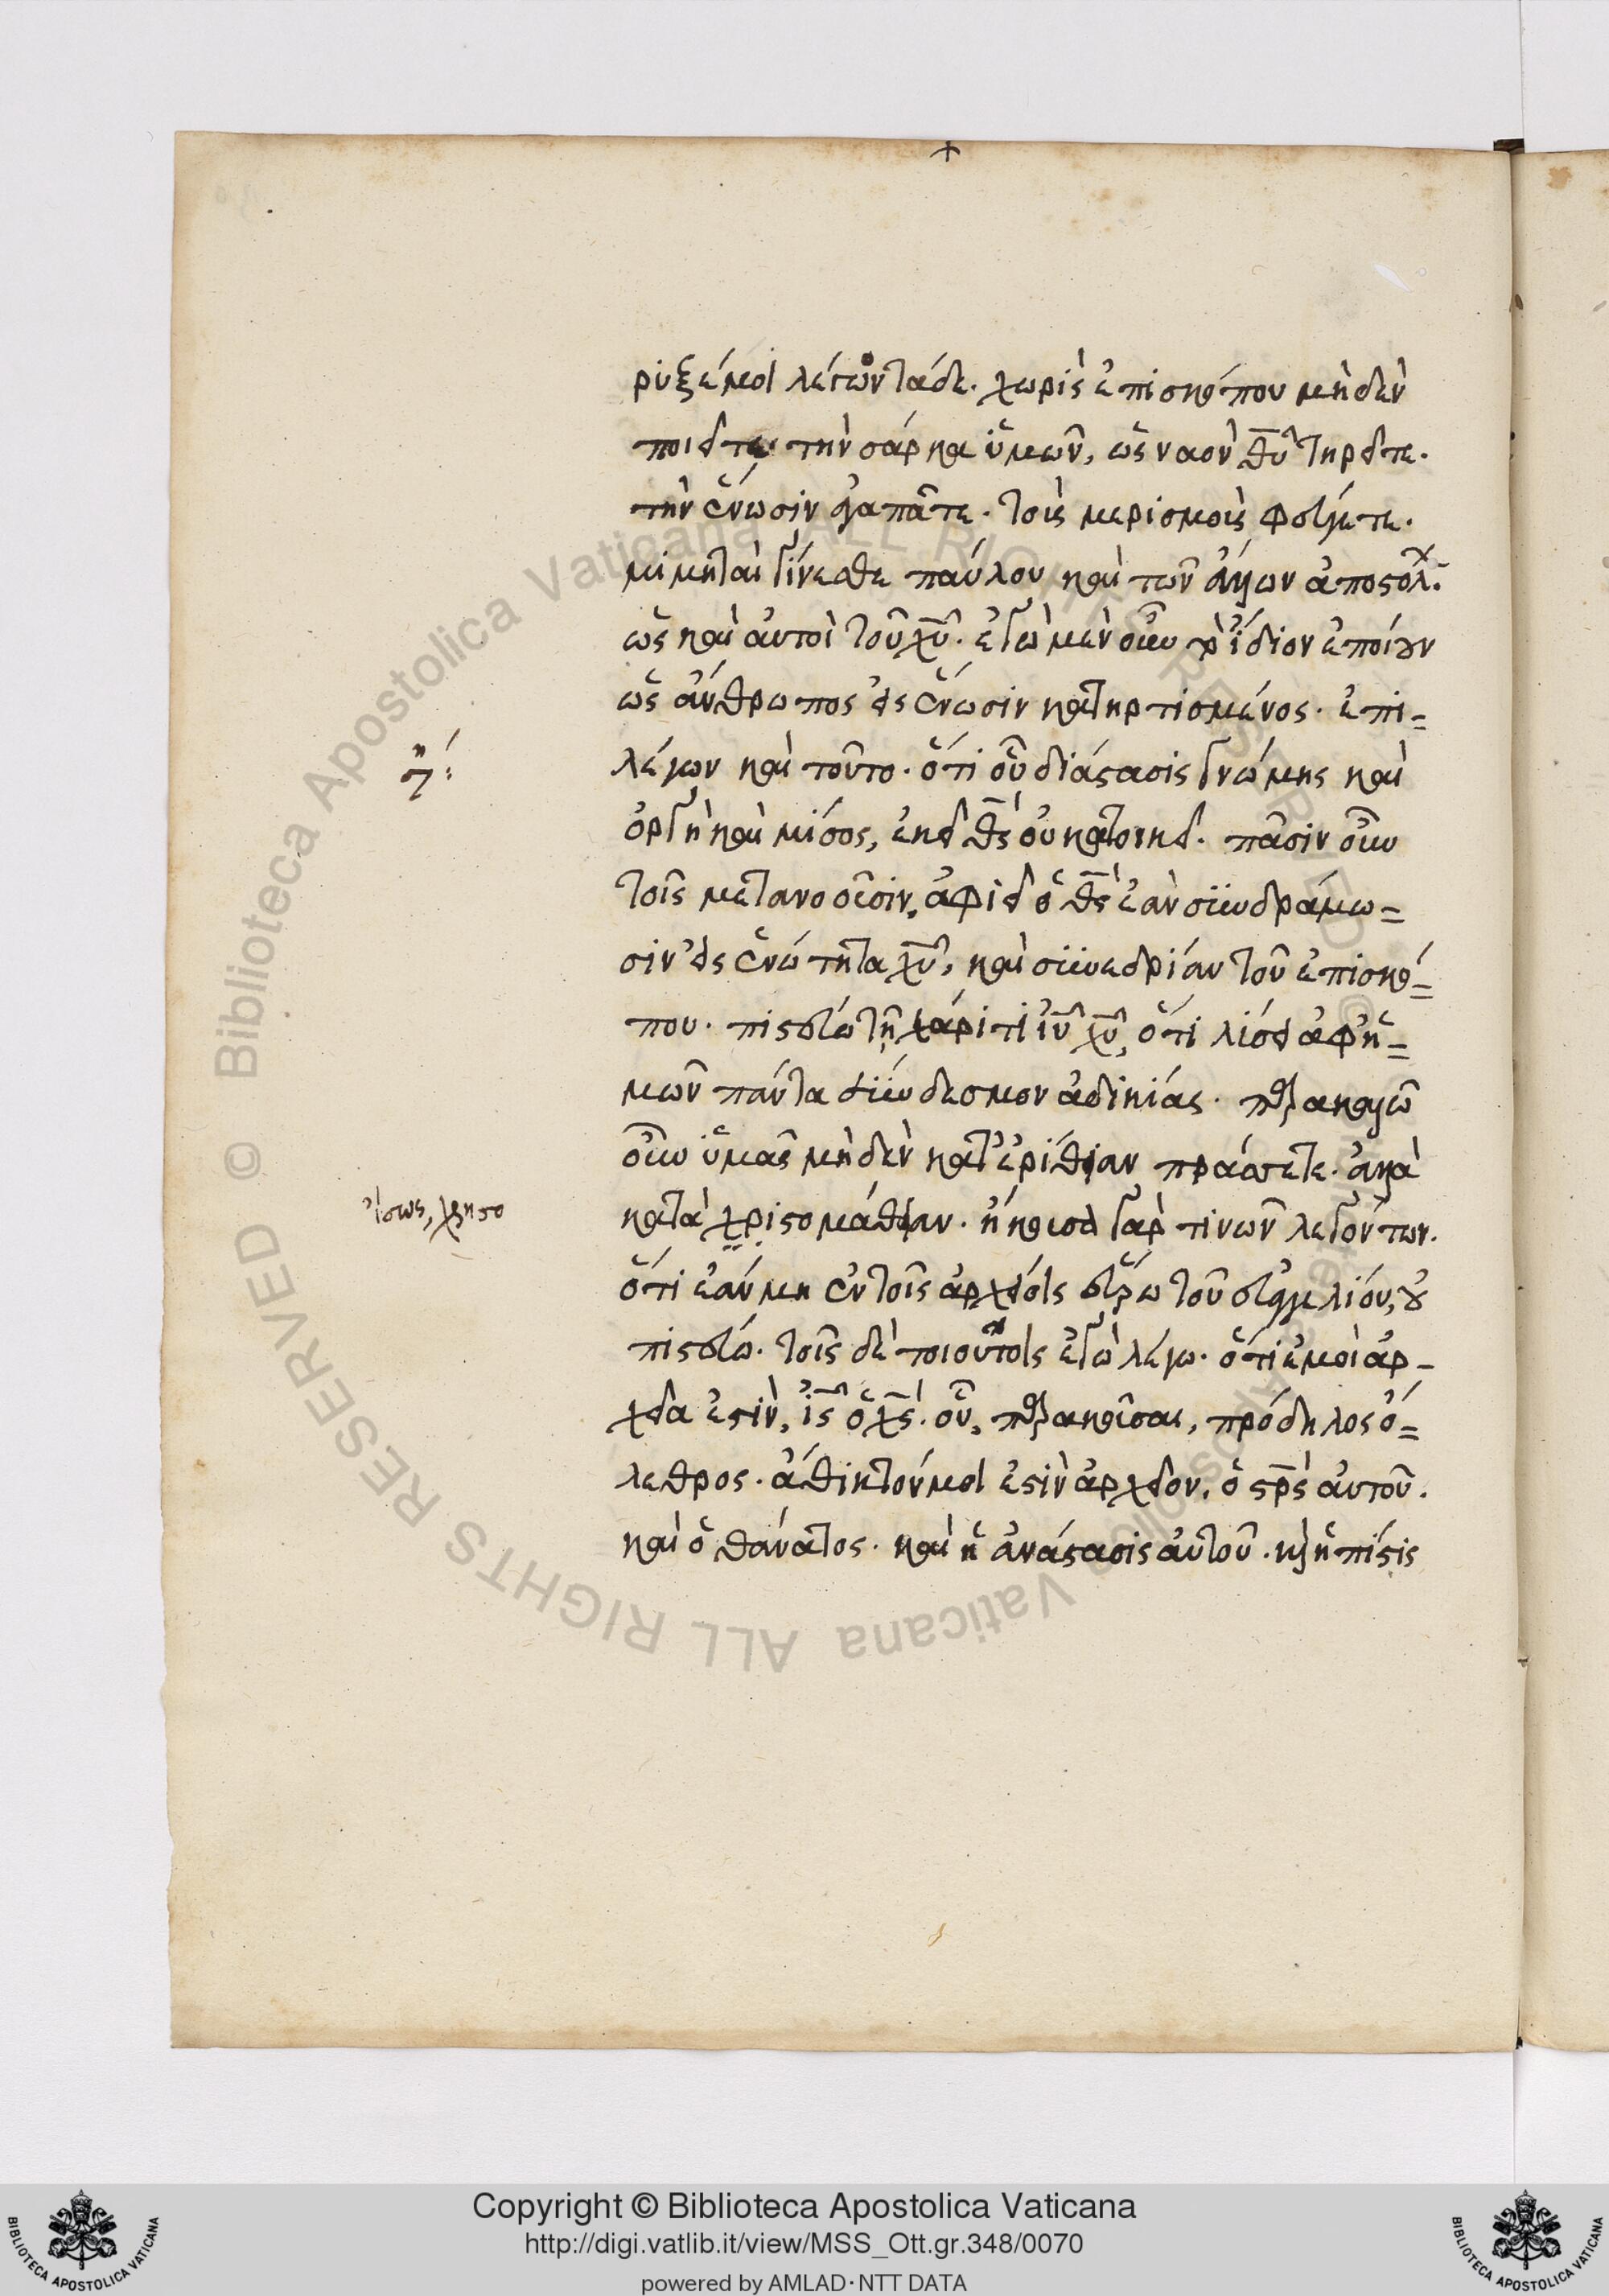 ρυξέμοι λέγων τάδε. χωρὶς ἐπισκόπου μηδὲν
ποιεῖτε· τὴν σάρκα ὑμῶν, ὡς ναὸν θυ̅ τηρεῖτε.
τὴν ἕνωσιν ἀγαπᾶτε. τοὺς μερισμοὺς φεύγετε.
μιμηταὶ γίνεσθε παύλου καὶ τῶν ἁγίων ἀποστόλ.
ὡς καὶ αὐτοὶ τοῦ χυ̅. ἐγὼ μὲν οὖν τὸ ἴδιον ἐποίουν
ὡς ἄνθρωπος εἰς ἕνωσιν κατηρτισμένος. ἐπι-
λέγων καὶ τοῦτο. ὅτι οὗ διάστασις γνώμης καὶ
η:
ὀργὴ καὶ μίσος, ἐκεῖ θς̅ οὐ κατοικεῖ. πᾶσιν οὖν
τοῖς μετανοοῦσιν, ἀφιεῖ ὁ θς̅ ἐὰν συνδράμω=
σιν εἰς ἑνώτητα χυ̅, καὶ συνεδρίαν τοῦ ἐπισκό=
που. πιστεύω τῇ χάριτι ιυ̅ χυ̅, ὅτι λύσει ἀφ' ἡ=
μῶν πάντα σύνδεσμον ἀδικίας. παρακαλῶ
οὖν ὑμᾶς μηδὲν κατ' ἐρίθειαν πράσσετε. ἀλλὰ
κατὰ χριστομάθειαν. ἤκουσα γάρ τινων λεγόντων.
ἴσως, χρηστο
ὅτι ἐὰν μὴ ἐν τοῖς ἀρχείοις εὕρω τοῦ εὐαγγελίου, οὐ
πιστεύω. τοῖς δὲ τοιούτοις ἐγὼ λέγω. ὅτι ἐμοὶ ἀρ-
χεῖα ἐστὶν, ις̅ ὁ χς̅. οὗ, παρακοῦσαι, πρόδηλος ὄ=
λεθρος. ἄθικτόν μοι ἐστὶν ἀρχεῖον, ὁ σρ̅ς αὐτοῦ.
καὶ ὁ θάνατος. καὶ ἡ ἀνάστασις αὐτοῦ. κỳ ἡ πίστις
Copyright © Biblioteca Apostolica Vaticana
http://digi.vatlib.it/view/MSS_Ott.gr.348/0070
powered by AMLAD·NTT DATA
BIBLIOTECA APOSTOLICA VATICANA
BIBLIOTECA APOSTOLICA VATICANA
Biblioteca Apostolica Vaticana ALL RIGHTS RESERVED ©
Biblioteca Apostolica Vaticana ALL RIGHTS RESERVED ©